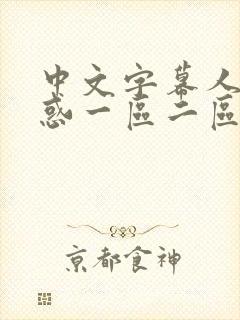 中文字幕人
惑一區二區
京都食神